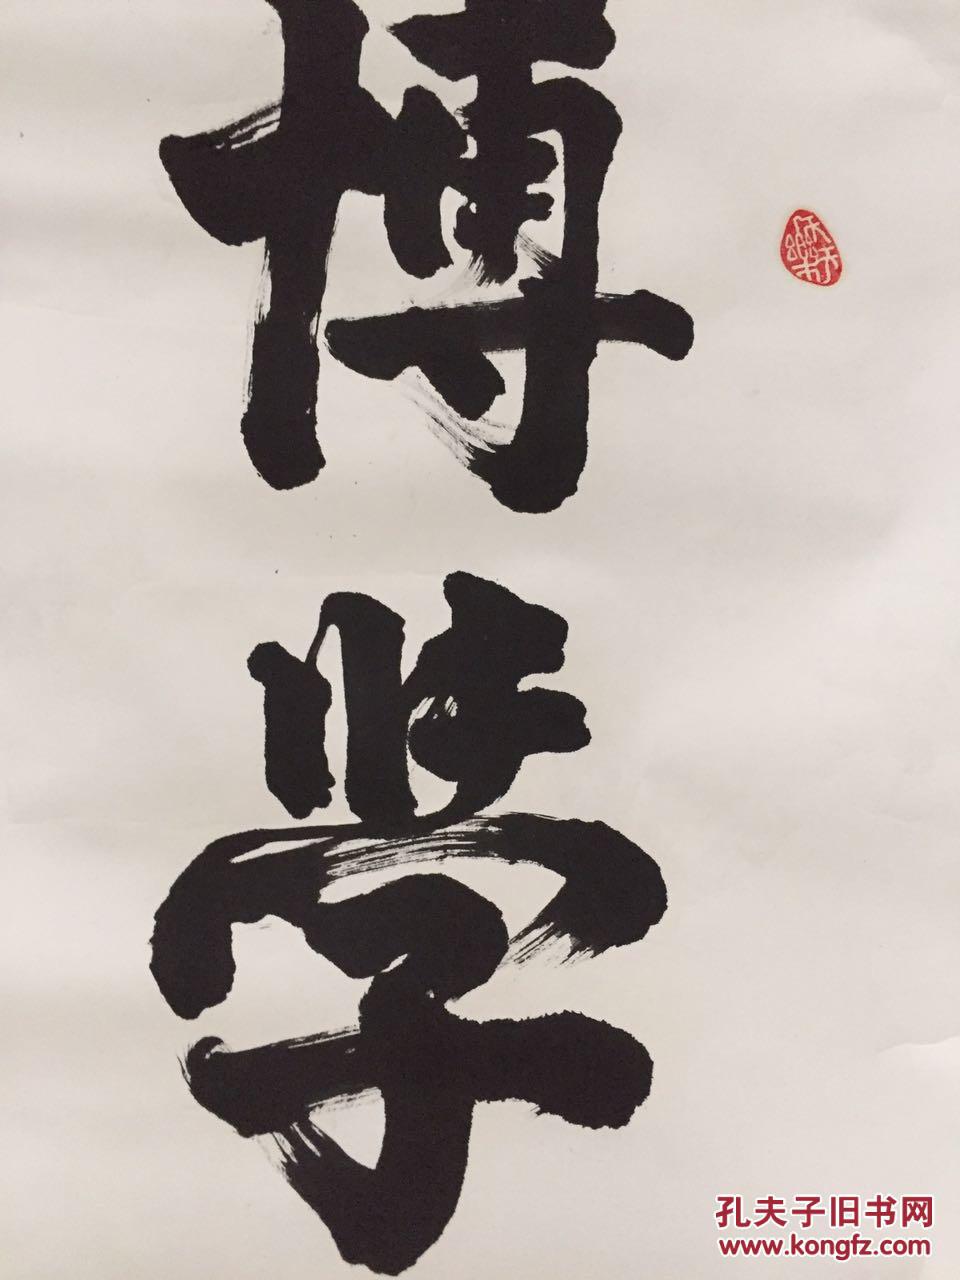 博
学
孔夫子旧书网
www.kongfz.com